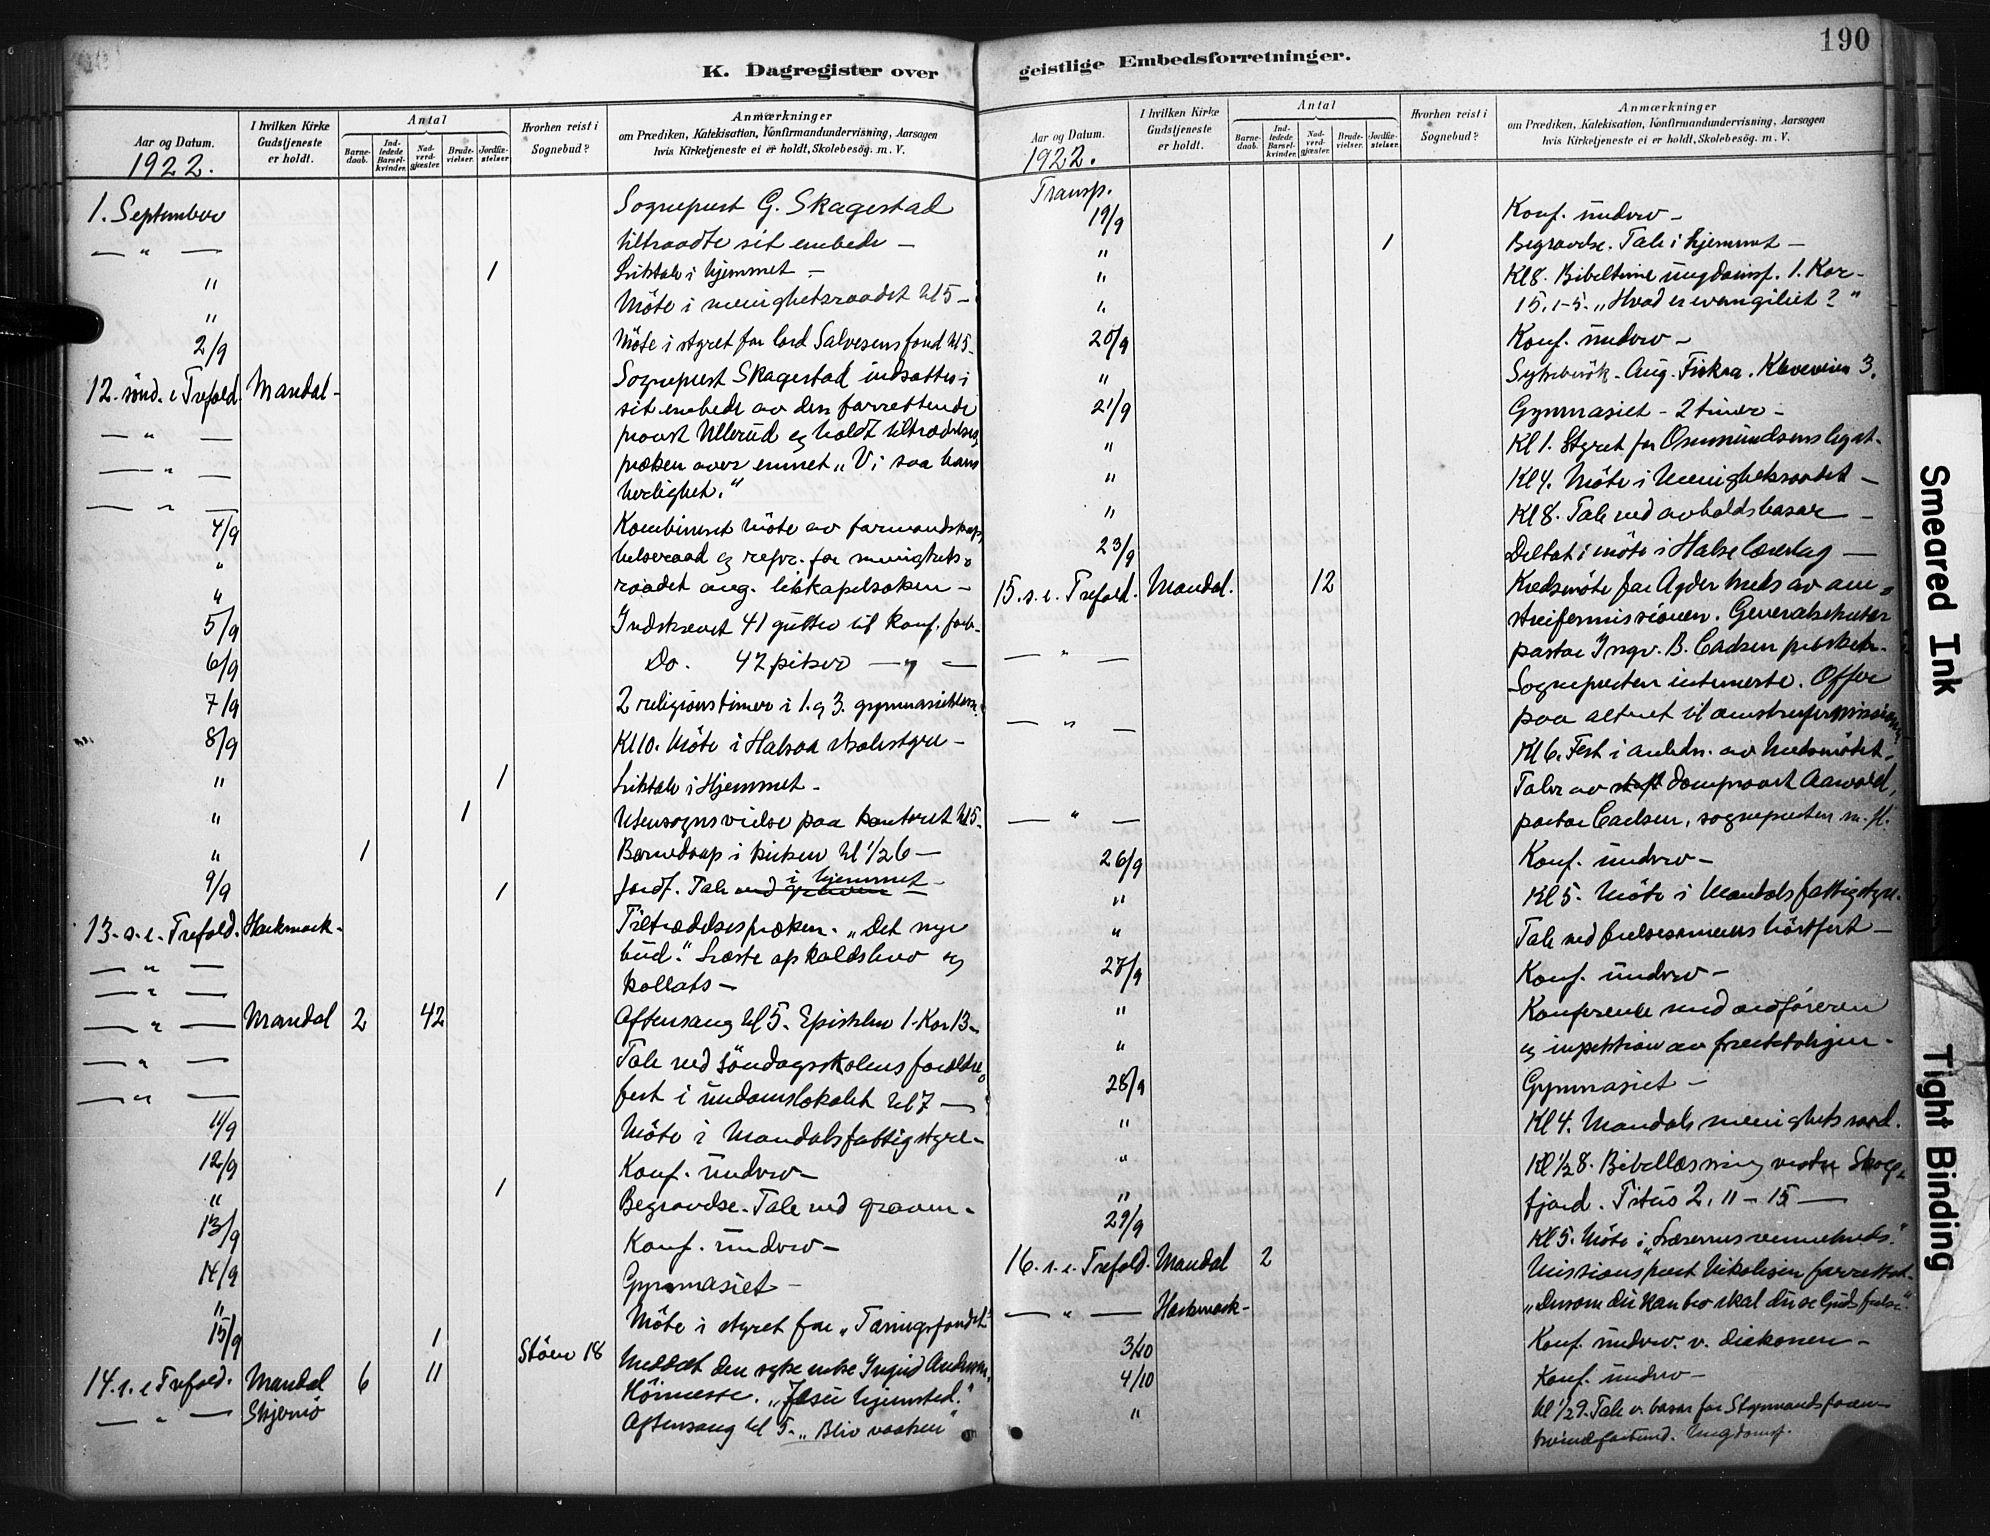 K. Dagregister over
Aar og Datum.
1922.
I hvilken Kirke Gudstjeneste er holdt.
Antal
Barne-daab.
Ind-ledede Barsel-kvinder.
Nad-verd-gjæster.
Brude-vielser.
Jordfæ-stelser.
Hvorhen reist i Sognebud?
Anmærkninger
om Prædiken, Katekisation, Konfirmandundervisning, Aarsagen
hvis Kirketjeneste ei er holdt, Skolebesög. m. V.
1. September Sogneprest G. Skagestad
— " — tiltraadte sit embede —
" 1 Liktale i hjemmet —
" Möte i menighetsraadet kl 5 —
2/9 Möte i styret for lord Salvesens fond kl 5 —
12. sönd. e Trefold. Mandal — Sogneprest Skagestad indsattes i
sit embede av den forrettende
— " — provst Ullerud og holdt tiltrædelses
— " — præken over emnet „Vi saa hans
— " — herlighet."
4/9 Kombineret möte av formandskap,
" helseraad og repr. for menighets-
" raadet ang. likkapelsaken —
5/9 Indskrevet 41 gutter til konf. forb.
6/9 Do. 42 piker — " —
7/9 2 religionstimer i 1. og 3. gymnasieklasse
8/9 Kl 10. Möte i Halsaa skolestyre —
" 1 Liktale i Hjemmet —
" 1 Utensognsvielse paa kontoret kl 5.
" 1 Barnedaap i kirken kl 1/2 6 —
9/9 1 Jordf. Tale ved graven i hjemmet —
13. s. e. Trefold. Harkmark. Tiltrædelsespræken. „Det nye
— " — bud". Læste op kaldsbrev og
— " — kollats —
— " — Mandal 2 42 Aftensang kl 5. Epistelen 1. Kor 13 —
— " — Tale ved söndagsskolens foreldre-
— " — fest i undomslokalet kl 7 —
11/9 Möte i Mandals fattigstyre —
12/9 Konf. underv —
" 1 Begravelse. Tale ved graven —
13/9 Konf. underv —
14/9 Gymnasiet —
" Möte i styret for „Tæringsfondet"
15/9 1 Stören 18 Meddelt den syke enke Ingrid Andersen
14. s. e Trefold. Mandal 6 11 Höimesse. „Jesu hjemsted."
— " — Skjernö Aftensang kl 5. „Bliv vaaken"
geistlige Embedsforretninger.
190
Aar og Datum.
1922.
I hvilken Kirke Gudstjeneste er holdt.
Antal
Barne-daab.
Ind-ledede Barsel-kvinder.
Nad-verd-gjæster.
Brude-vielser.
Jordfæ-stelser.
Hvorhen reist i Sognebud?
Anmærkninger
om Prædiken, Katekisation, Konfirmandundervisning, Aarsagen
hvis Kirketjeneste ei er holdt, Skolebesög. m. V.
Transp.
19/9 Konf. underv —
" 1 Begravelse. Tale i hjemmet —
" Kl 8. Bibeltime ungdomsf. 1. Kor.
" 15, 1-5. „Hvad er evangeliet?"
20/9 Konf. underv —
" Sykebesök. Aug. Fiskaa. Kleveveien 3.
21/9 Gymnasiet — 2 timer —
" Kl 1. Styret for Osmundsens legat.
" Kl 4. Möte i Menighetsraadet —
" Kl 8. Tale ved avholdsbasar —
23/9 Deltat i möte i Halse lærerlag —
15. s. e. Trefold. Mandal. 12 Kredsmöte for Agder kreds av am-
streifermissionen. Generalsekretær
— " — pastor Ingv. B. Carlsen prædiket.
Sognepresten intimerte. Offer
— " — paa alteret til omstreifermissionen
Kl 6. Fest i anledn. av kredsmötet.
Taler av domprovst Aarvold,
— " — pastor Carlsen, sognepresten m. fl.
26/9 Konf. underv —
" Kl 5. Möte i Mandals fattigstyre.
" Tale ved frelsesarmeens höstfest —
27/9 Konf. underv —
" Konferense med ordföreren
" og inspektion av prestebolgen —
28/9 Gymnasiet —
" Kl 4. Mandals menighetsraad.
" Kl 1/2 8. Bibellæsning vestre Skogs-
" fjord. Titus 2, 11-15 —
29/9 Kl 5. Möte i „Lærernes vennekreds".
16. s. e. Trefold. Mandal 2 Missionsprest Nikolisen forrettet.
— " — Harkmark — „Dersom du kan tro skal du se Guds frelse".
3/10 Konf. underv. v. diakonen —
4/10 Konf. underv —
" Kl 1/2 9. Tale v. basar for Styrmandsforen-
kvindeforbund. Ungdomsf.
Smeared Ink
Tight Binding